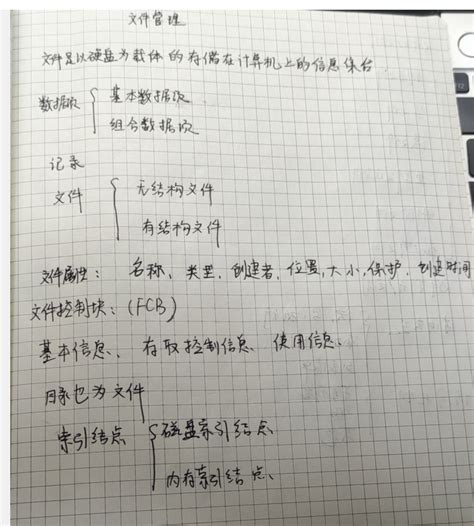 文件管理
文件是以硬盘为载体的存储在计算机上的信息集合
数据项 { 基本数据项
组合数据项
记录
文件 { 无结构文件
有结构文件
文件属性: 名称、类型、创建者、位置、大小、保护、创建时间
文件控制块:(FCB)
基本信息、存取控制信息、使用信息、
目录也为文件
索引结点 { 磁盘索引结点
内存索引结点、